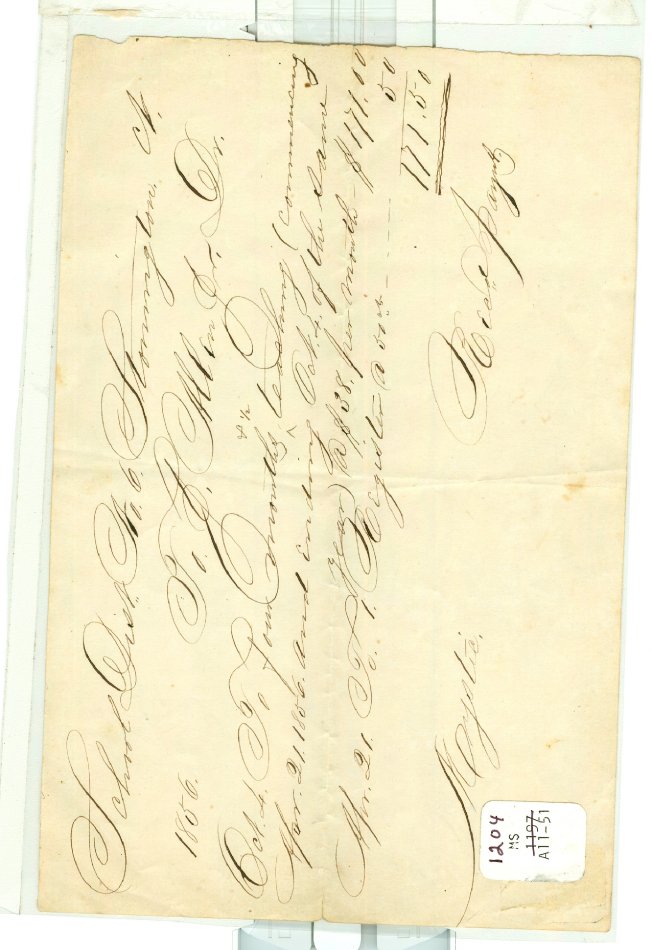 School Dist. No. 6. Stonington, Ct.
1856. To J. Allen Jr. Dr.
Oct. 4. To Four months & ½ teaching (commencing
Apr. 21. 1856. and ending Oct. 4. of the same
year) @ $38. per month - $171.00
Apr. 21. To. 1. Register @ 50 cts - - - - 50
171.50
Mystic. Recd. Paymt.
1204
MS
1197
A11-51